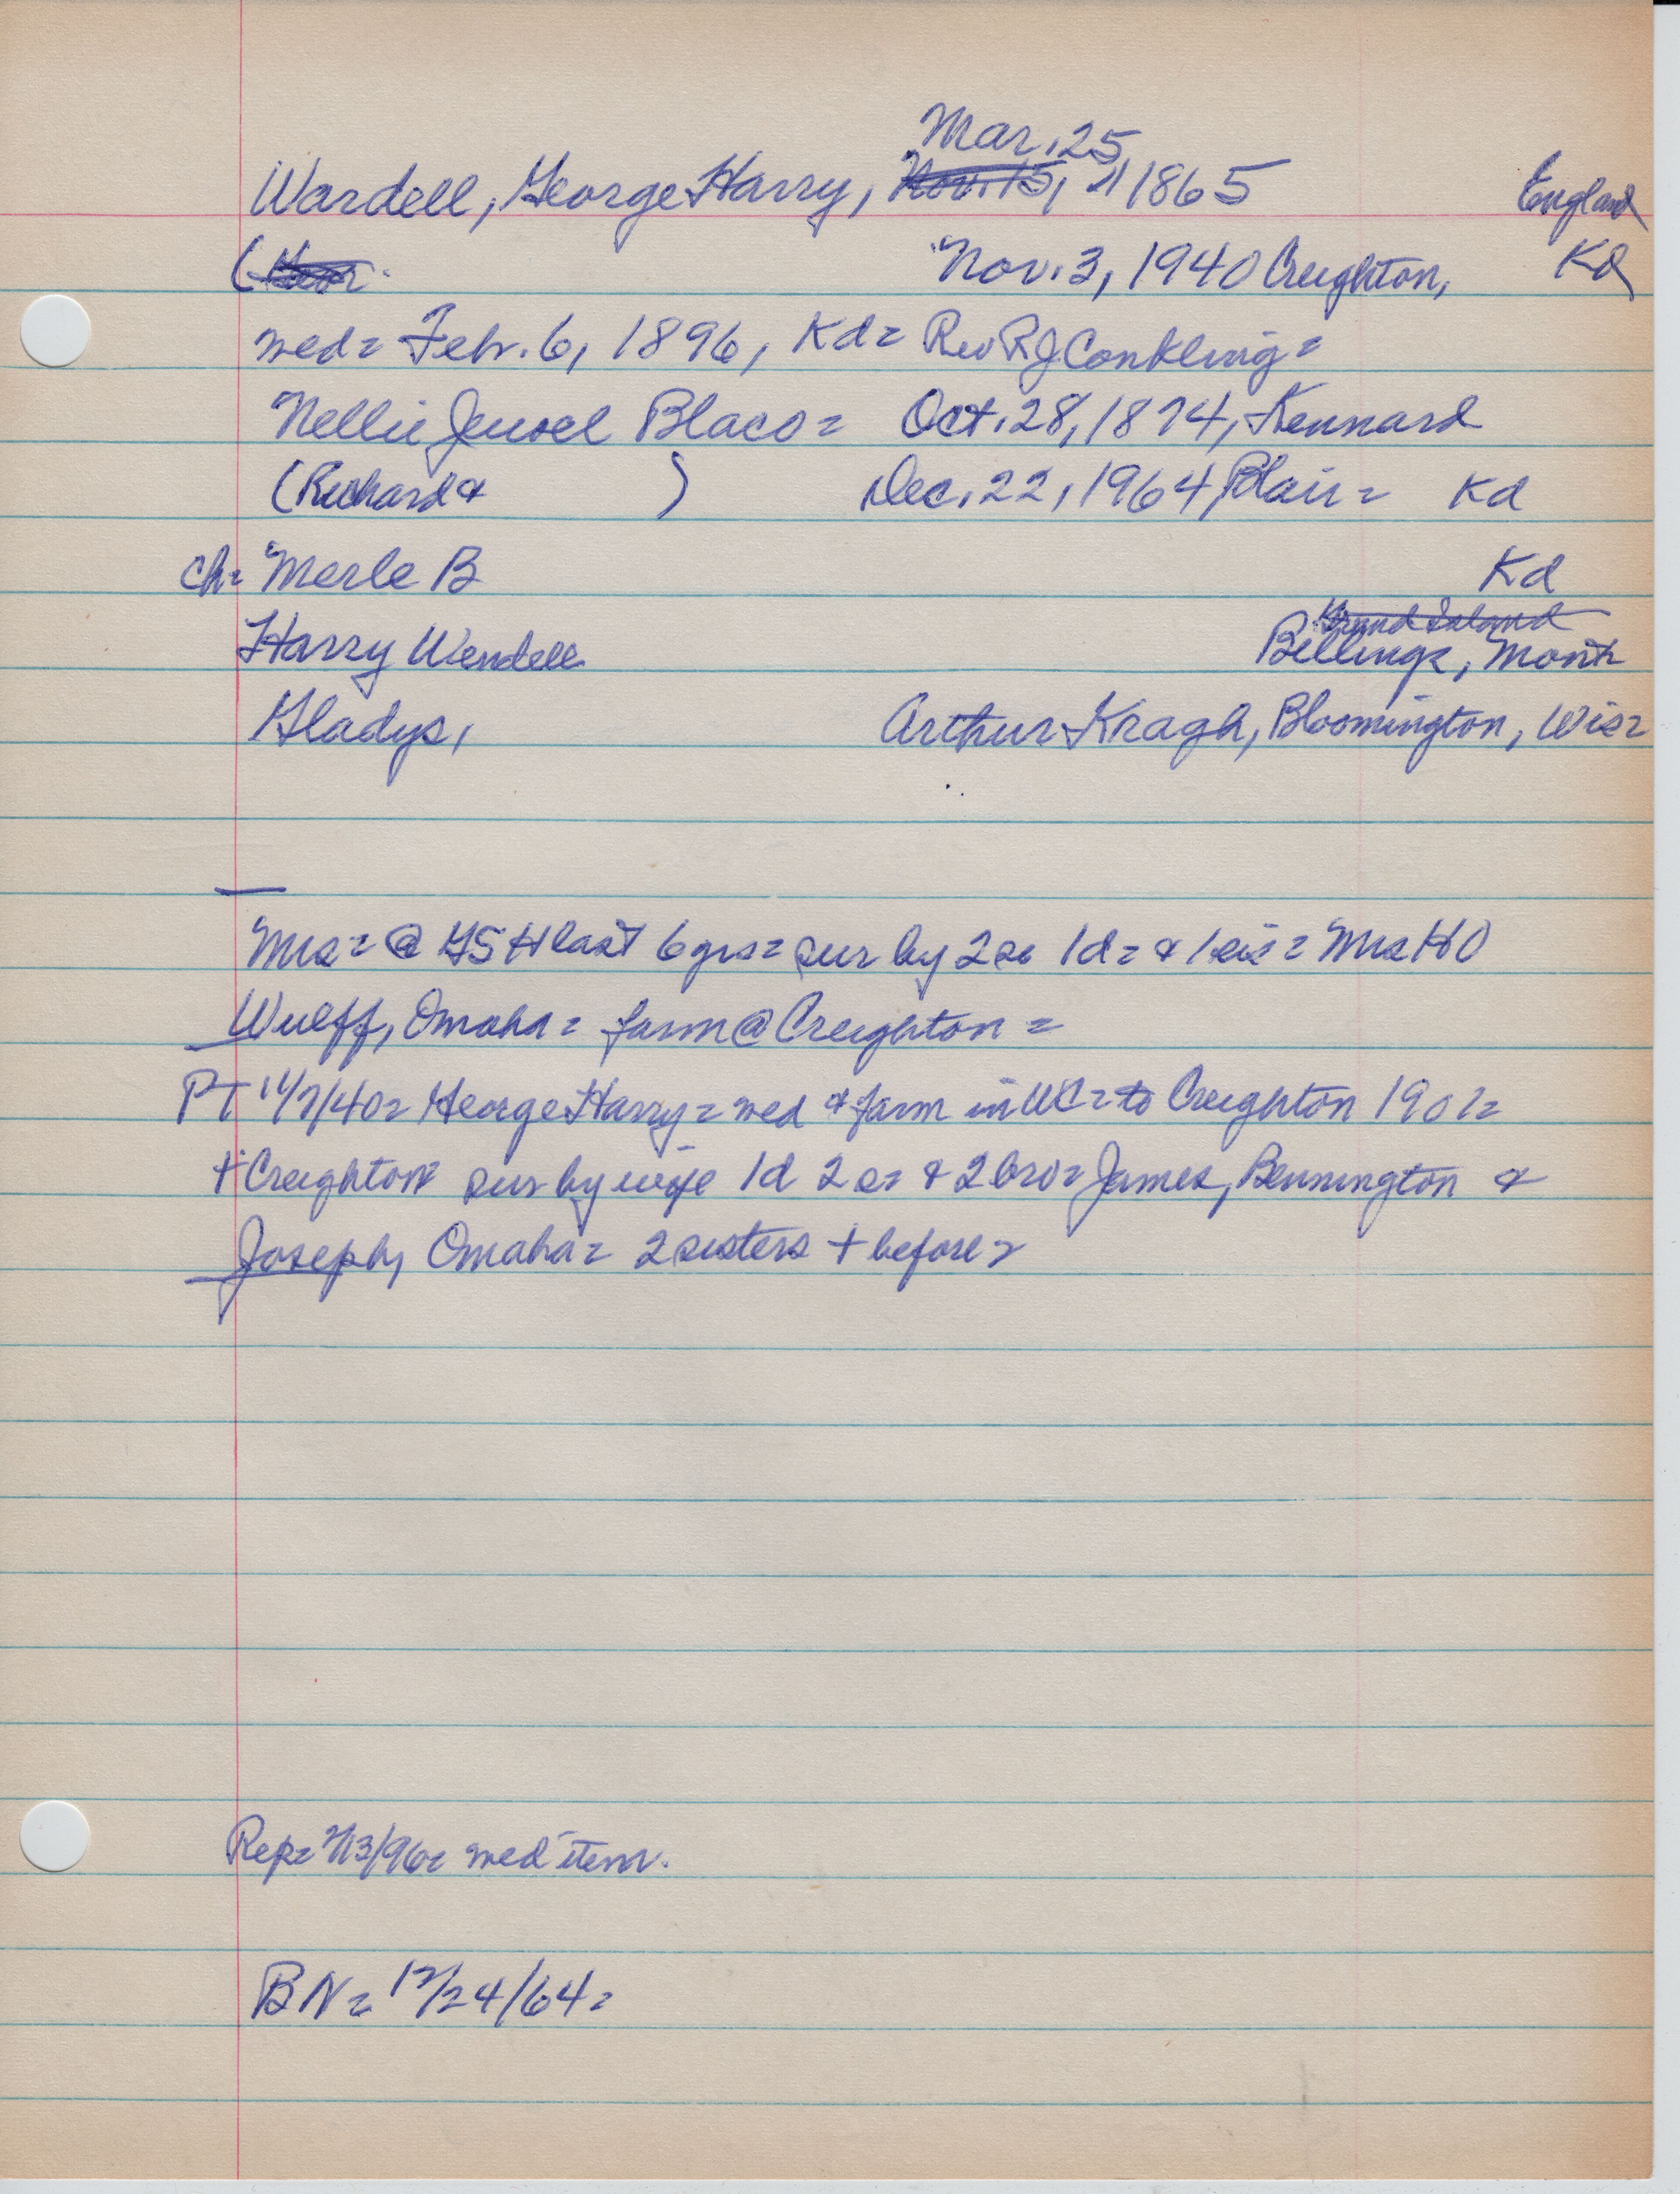 Mar. 25
Wardell, George Harry, Nov. 15, 1865 England
( Nov. 3, 1940 Creighton, Kd
wed= Feb. 6, 1896, Kd= Rev R J Conkling=
Nellie Jewel Blaco= Oct. 28, 1874, Kennard
(Richard & ) Dec. 22, 1964, Blair= Kd
ch= Merle B Kd
Grand Island
Harry Wendell Billings, Mont
Gladys, Arthur Kragh, Bloomington, Wis=
Mrs= @ GSH last 6 yrs= sur by 2 s= 1d= & 1 sis= Mrs H O
Wulff, Omaha= farm @ Creighton=
PT 11/7/40= George Harry= wed & farm in WC= to Creighton 1901=
+ Creighton= sur by wife 1d 2 s= & 2 bro= James, Bennington &
Joseph, Omaha= 2 sisters + before=
Rep= 2/13/96= wed item.
BN= 12/24/64=